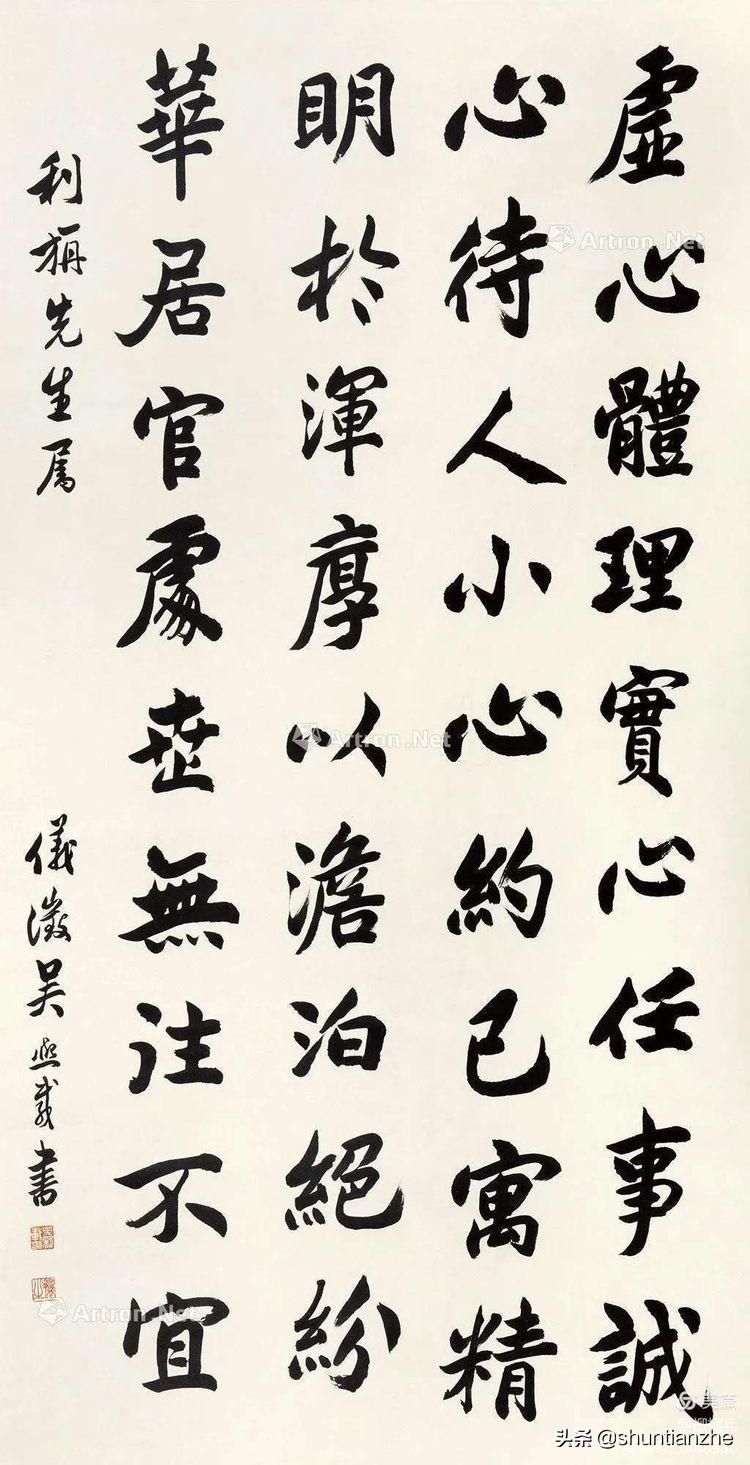 虛心體理實心任事誠
心待人小心約己寓精
明於渾厚以澹泊絕紛
華居官處世無往不宜
利旃先生属
儀澂吴熙載書
Artron.Net
Artron.Net
Artron.Net
美篇
头条 @shuntianzhe